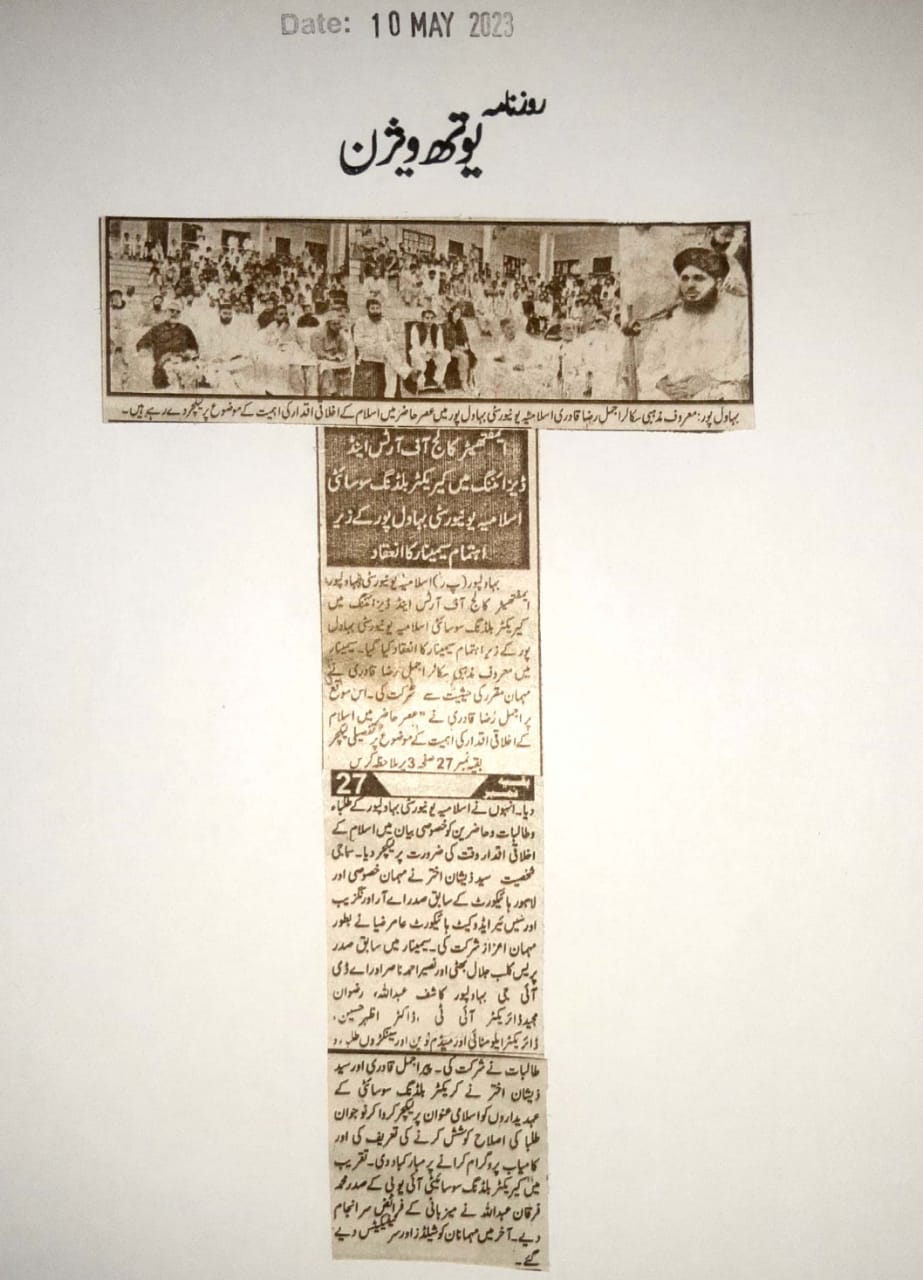 Date: 10 MAY 2023
روزنامہ
یوتھ ویژن
بہاول پور: معروف مذہبی سکالر اجمل رضا قادری اسلامیہ یونیورسٹی بہاول پور میں عصر حاضر میں اسلام کے اخلاقی اقدار کی اہمیت کے موضوع پر لیکچر دے رہے ہیں۔
ایمفتھیٹر کالج آف آرٹس اینڈ
ڈیزائننگ میں کیریکٹر بلڈنگ سوسائٹی
اسلامیہ یونیورسٹی بہاول پور کے زیر
اہتمام سیمینار کا انعقاد
بہاولپور (پ ر) اسلامیہ یونیورسٹی بہاولپور
ایمفتھیٹر کالج آف آرٹس اینڈ ڈیزائننگ میں
کیریکٹر بلڈنگ سوسائٹی اسلامیہ یونیورسٹی بہاول
پور کے زیر اہتمام سیمینار کا انعقاد کیا گیا۔ سیمینار
میں معروف مذہبی سکالر اجمل رضا قادری نے
مہمان مقرر کی حیثیت سے شرکت کی۔ اس موقع
پر اجمل رضا قادری نے "عصر حاضر میں اسلام
کے اخلاقی اقدار کی اہمیت کے موضوع پر تفصیلی لیکچر
بقیہ نمبر 27 صفحہ 3 پر ملاحظہ کریں
بقیہ نمبر 27
دیا۔ انہوں نے اسلامیہ یونیورسٹی بہاولپور کے طلباء
و طالبات و حاضرین کو خصوصی بیان میں اسلام کے
اخلاقی اقدار وقت کی ضرورت پر لیکچر دیا۔ سماجی
شخصیت سید ذیشان اختر نے مہمان خصوصی اور
لاہور ہائیکورٹ کے سابق صدر اے آر اورنگزیب
اور سینئر ایڈوکیٹ ہائیکورٹ عامر ضیا نے بطور
مہمان اعزاز شرکت کی۔ سیمینار میں سابق صدر
پریس کلب جلال بھٹی اور نصیر احمد ناصر اور اے ڈی
آئی جی بہاولپور کاشف عبداللہ، رضوان
مجید ڈائریکٹر آئی ٹی، ڈاکٹر اظہر حسین،
ڈائریکٹر ایلومنائی اور میڈم نوین اور سینکڑوں طلبہ و
طالبات نے شرکت کی۔ پیر اجمل قادری اور سید
ذیشان اختر نے کریکٹر بلڈنگ سوسائٹی کے
عہدیداروں کو اسلامی عنوان پر لیکچر کروا کر نوجوان
طلبا کی اصلاح کوشش کرنے کی تعریف کی اور
کامیاب پروگرام کرانے پر مبارکباد دی۔ تقریب
میں کیریکٹر بلڈنگ سوسائیٹی آئی یو بی کے صدر محمد
فرقان عبداللہ نے میزبانی کے فرائض سر انجام
دیے۔ آخر میں مہمانان کو شیلڈز اور سرٹیفکیٹس دیے
گئے۔